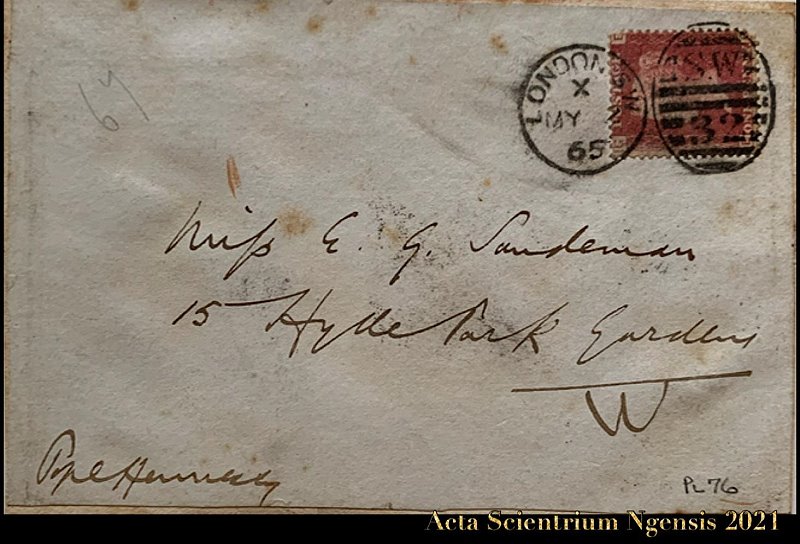 64
LONDON S.W
X
MY
65
SW
32
Miss E. G. Sandeman
15 Hyde Park Gardens
W
Pope Hennessy
PL 76
Acta Scientrium Ngensis 2021